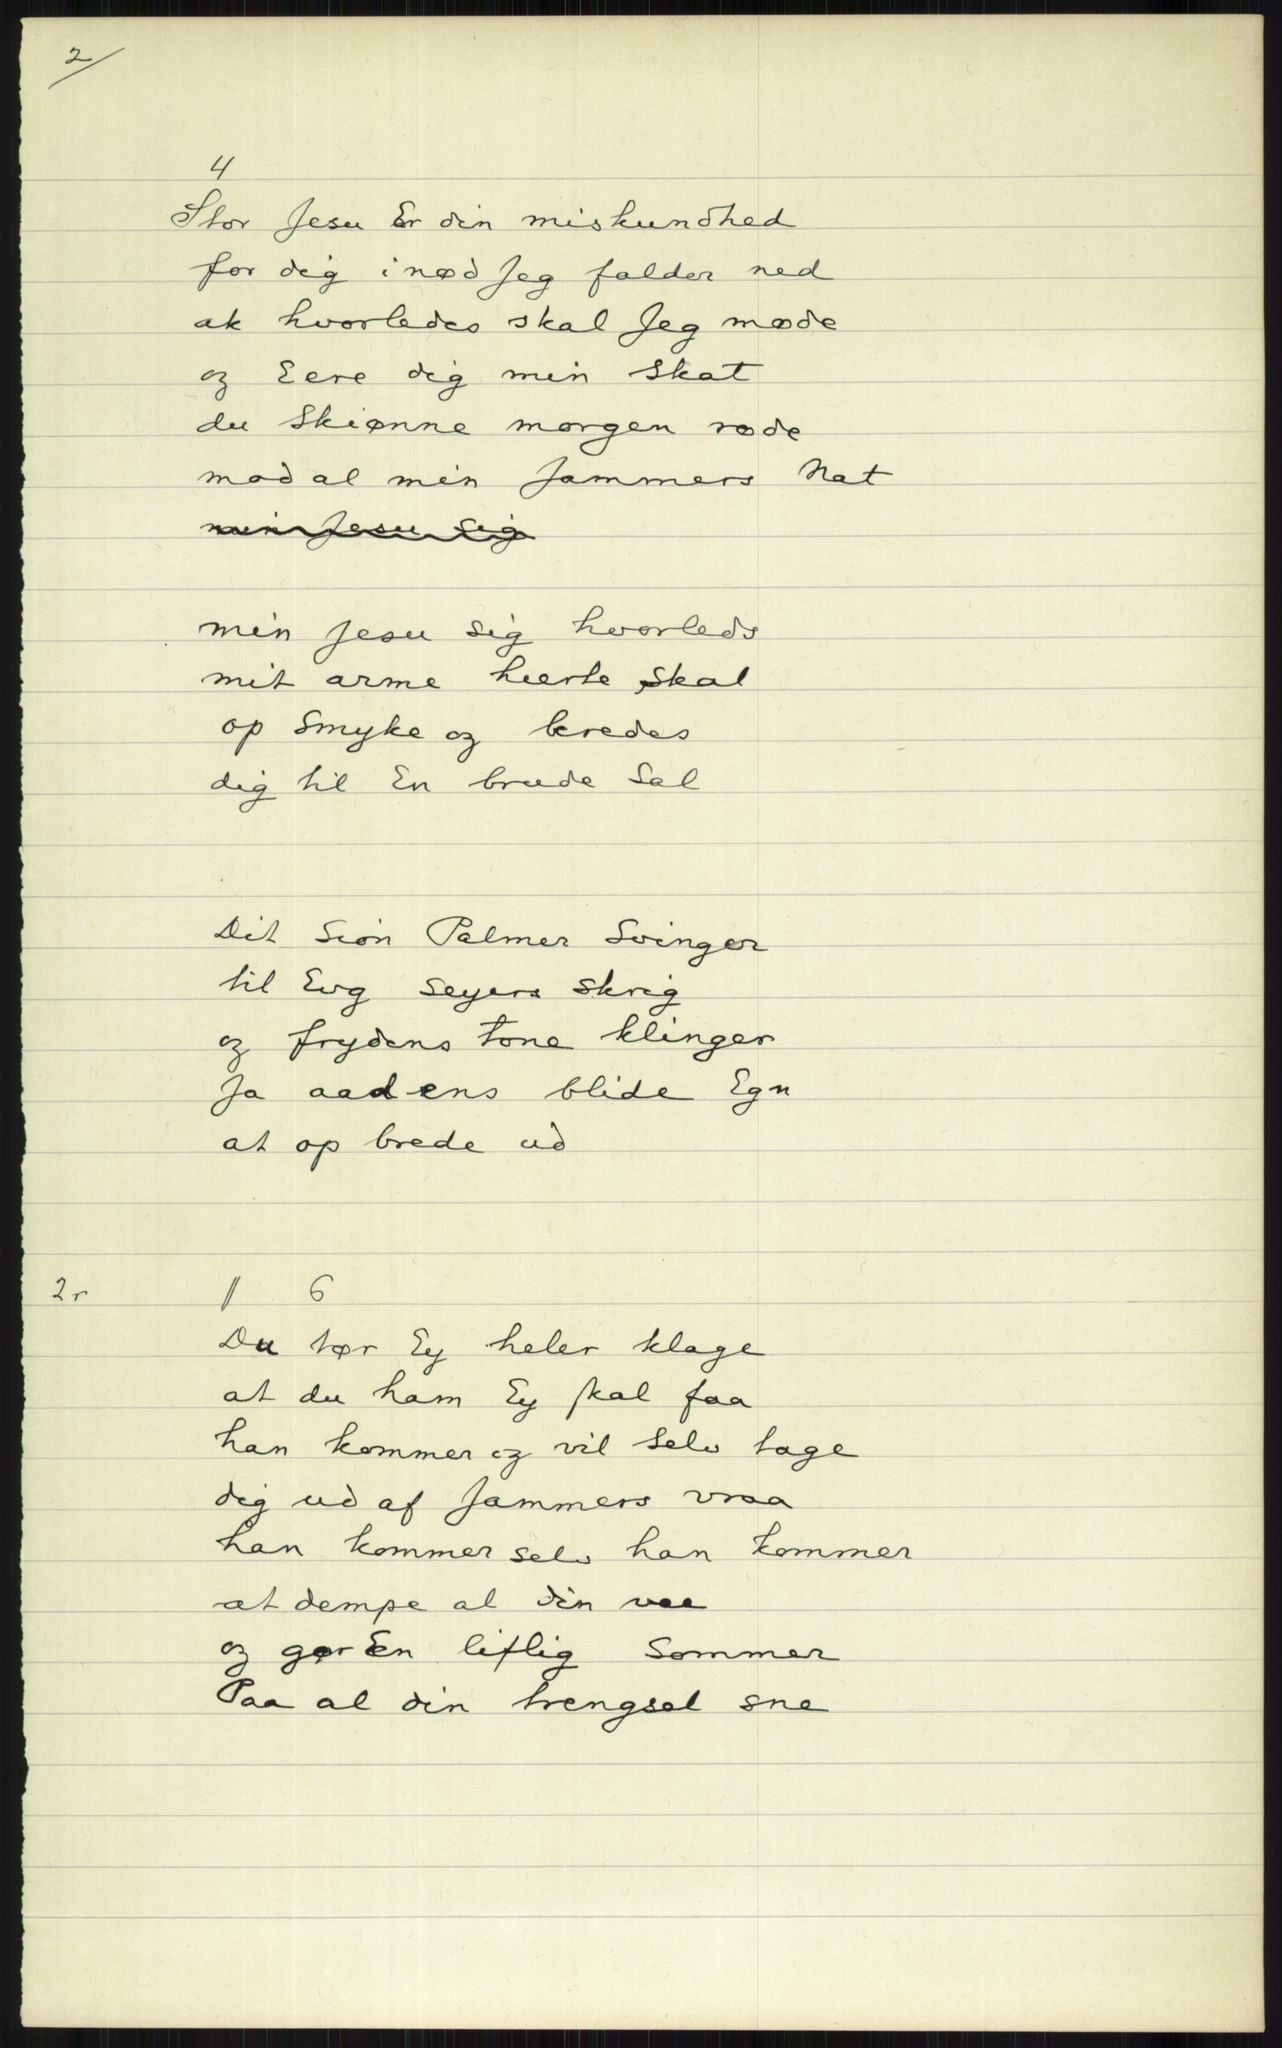 2/
4
Stor Jesu Er din miskundhed
for dig i nød Jeg falder ned
ak hvorledes skal Jeg møde
og Eere dig min Skat
du Skiønne morgen røde
mod al min Jammers Nat
min Jesu Sig
min Jesu Sig hvorleds
mit arme hierte Skal
op Smyke og beredes
dig til En brude Sal
Dit Sion Palmer Svinger
til Evg Seyers Skrig
og frydens tone klinger
Ja aadens blide Egn
at op brede ud
2r // 6
Du tør Ey heler klage
at du ham Ey skal faa
han kommer og vil Selv tage
dig ud af Jammers vraa
han kommer selv han kommer
at dempe al din vee
og gør En liflig Sommer
Paa al din trengsel sne